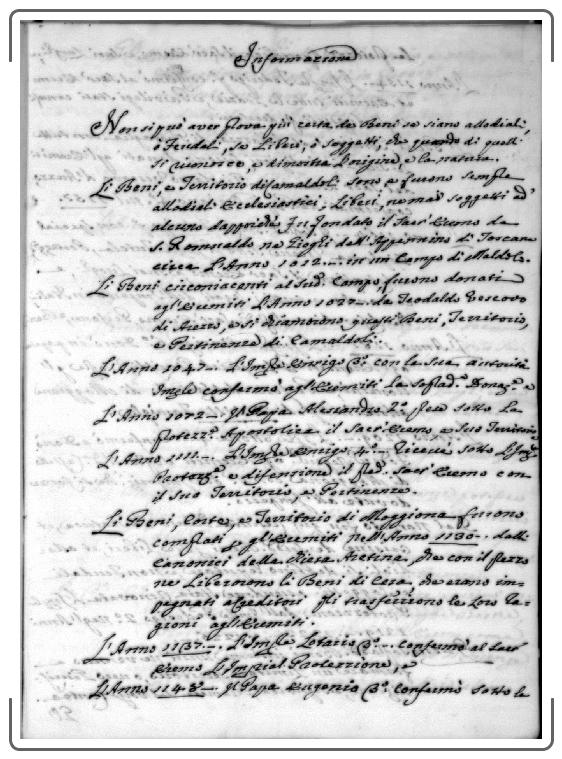 Informazione
Non si può aver prova più certa de Beni se siano allodiali,
ò Feudali, se Liberi, ò soggetti, che quando di quelli
si riconosce, e dimostra l'origine, e la natura.
Li Beni, e Territorio di Camaldoli sono e furono sempre
allodiali Ecclesiastici, Liberi, ne mai soggetti ad
alcuno dappoiche fu fondato il Sacr'Eremo da
S. Romualdo ne Gioghi dell'Appennino di Toscana
circa L'Anno 1012 in un Campo di Maldolo.
Li Beni circonvicenti al Sud. Campo, furono donati
agl'Eremiti L'Anno 1027 da Teodaldo Vescovo
di Arezzo, e si chiamorono questi Beni, Territorio,
e Pertinenze di Camaldoli.
L'Anno 1047 L'Impre Enrigo 3º. con la Sua autorità
Imple confermò agl'Eremiti la Donaz.e e
L'Anno 1072 Il Papa Alesandro 2º. sotto La
Protez.e Apostolica il Sacr'Eremo e Suo Territorio
L'Anno 1111 L'Impre Enrigo 4º. Riceve sotto
Protez.e e difensione il Sacr'Eremo con
il Suo Territorio, e Pertinenze.
Li Beni, Corte, e Territorio di Moggiona furono
comprati p gl'Eremiti nell'Anno 1130 dalli
Canonici della Pieve Aretina, che con il prezzo
ne Liberorono li Beni di che erano im-
pegnati a Creditori gli trasferirono le Loro Ra-
gioni agl'Eremiti.
L'Anno 1137 L'Impre Lotario 3º. Confermò al Sacr
Eremo L'Impial Protezzione, e
L'Anno 1148 Il Papa Eugenio 3º. Confermò sotto la